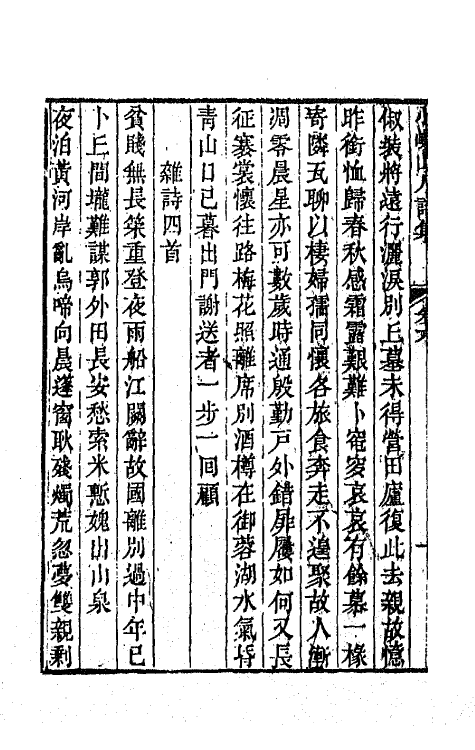 俶装將遠行灑淚別丘墓未得營田廬復此去親故憶
昨銜恤歸春秋感霜露艱難卜窀穸哀哀有餘慕一椽
寄隣瓦聊以棲婦孺同懷各旅食奔走不遑聚故人漸
凋零晨星亦可數歲時通殷勤戸外錯屝屨如何又長
征褰裳懷往路梅花照離席別酒樽在御蓉湖水氣昏
青山口已暮出門謝送者一步一回顧
雜詩四首
貧賤無長筞重登夜雨船江關辭故國離別過中年已
卜丘間壠難謀郭外田長安愁索米慙媿出山泉
夜泊黃河岸亂烏啼向晨蓬窗耿殘燭荒忽夢雙親剩